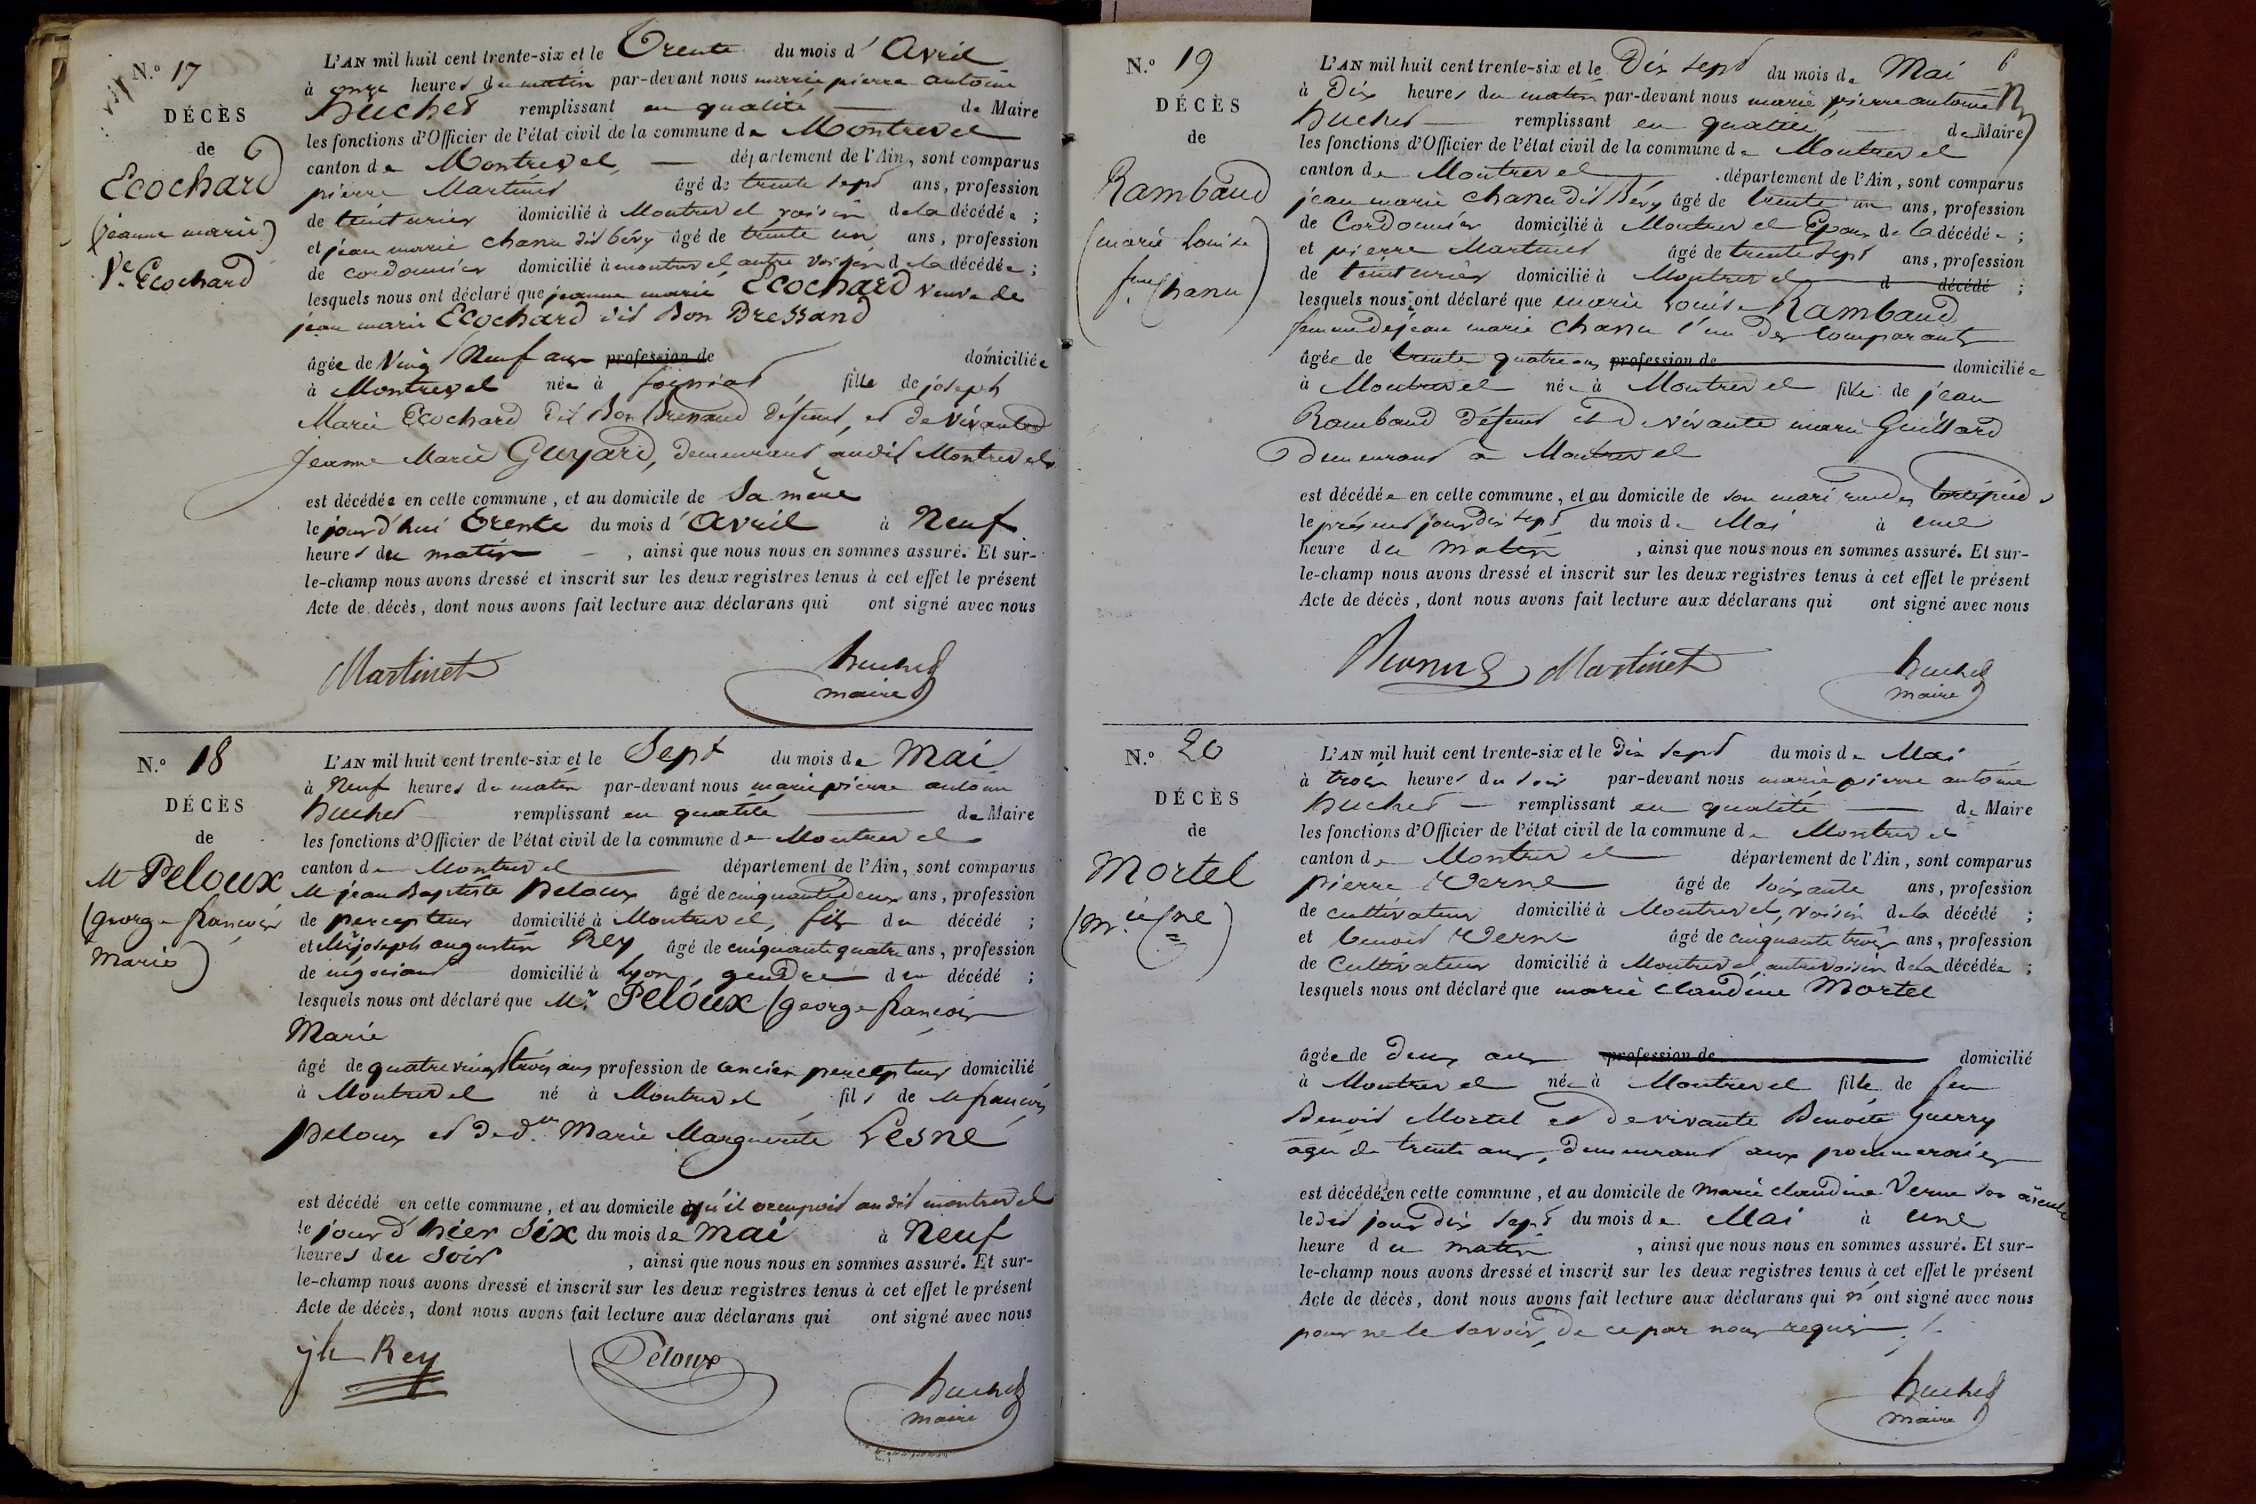 N.o 17
DÉCÈS
de
Ecochard
(jeanne marie)
Ve Ecochard
L'AN mil huit cent trente-six et le Trente du mois d' Avril
à onze heures du matin par-devant nous marie pierre antoine
huchet remplissant en qualité de Maire
les fonctions d'Officier de l'état civil de la commune de Montrevel
canton de Montrevel, département de l'Ain, sont comparus
pierre Martinet âgé de trente sept ans, profession
de teinturier domicilié à Montrevel voisin de la décédée ;
et jean marie chanu dit bévy âgé de trente un ans, profession
de cordonnier domicilié à montrevel, autre voisin de la décédée ;
lesquels nous ont déclaré que jeanne marie Ecochard veuve de
jean marie Ecochard dit Bon Bressand
âgée de Vingt Neuf ans profession de domiciliée
à Montrevel née à foissiat fille de joseph
Marie Ecochard dit Bon Bressand défunt, et de vivante
Jeanne Marie Guyard, demeurant audit Montrevel
est décédée en cette commune, et au domicile de Sa mère
le jourd'hui Trente du mois d' Avril à Neuf
heures du matin , ainsi que nous nous en sommes assuré. Et sur-
le-champ nous avons dressé et inscrit sur les deux registres tenus à cet effet le présent
Acte de décès, dont nous avons fait lecture aux déclarans qui ont signé avec nous
Martinet huchet
maire
N.o 18
DÉCÈS
de
M Peloux
(george françois
Marie)
L'AN mil huit cent trente-six et le Sept du mois de Mai
à Neuf heures du matin par-devant nous marie pierre antoine
huchet remplissant en qualité de Maire
les fonctions d'Officier de l'état civil de la commune de Montrevel
canton de Montrevel département de l'Ain, sont comparus
M jean Baptiste Peloux âgé de cinquante deux ans, profession
de percepteur domicilié à Montrevel, fils du décédé ;
et Mr joseph augustin Rey âgé de cinquante quatre ans, profession
de négociant domicilié à lyon, gendre du décédé ;
lesquels nous ont déclaré que Mr Peloux (george françois
Marie
âgé de quatre vingt trois ans profession de ancien percepteur domicilié
à Montrevel né à Montrevel fils de M françois
Peloux et de d.lle Marie Marguerite Lesné
est décédé en cette commune, et au domicile qu'il occupoit audit montrevel
le jour d'hier Six du mois de Mai à Neuf
heures du Soir , ainsi que nous nous en sommes assuré. Et sur-
le-champ nous avons dressé et inscrit sur les deux registres tenus à cet effet le présent
Acte de décès, dont nous avons fait lecture aux déclarans qui ont signé avec nous
jh Rey Peloux huchet
maire
N.o 19
DÉCÈS
de
Rambaud
(marie louise
fme Chanu)
L'AN mil huit cent trente-six et le Dix sept du mois de Mai 6
à Dix heures du matin par-devant nous marie pierre antoine
huchet remplissant en qualité de Maire
les fonctions d'Officier de l'état civil de la commune de Montrevel
canton de Montrevel département de l'Ain, sont comparus
jean marie chanu dit bévy âgé de trente un ans, profession
de Cordonnier domicilié à Montrevel Epoux de la décédée ;
et pierre Martinet âgé de trente sept ans, profession
de teinturier domicilié à Montrevel d décédé ;
lesquels nous ont déclaré que marie Louise Rambaud
femme de jean marie chanu l'un des Comparants
âgée de trente quatre ans profession de domiciliée
à Montrevel née à Montrevel fille de jean
Rambaud défunt et De vivante marie Guillard
Demeurant à Montrevel
est décédée en cette commune, et au domicile de son mari
le présent jour dix sept du mois de Mai à une
heure du Matin , ainsi que nous nous en sommes assuré. Et sur-
le-champ nous avons dressé et inscrit sur les deux registres tenus à cet effet le présent
Acte de décès, dont nous avons fait lecture aux déclarans qui ont signé avec nous
Martinet huchet
maire
N.o 20
DÉCÈS
de
Mortel
L'AN mil huit cent trente-six et le Dix sept du mois de Mai
à trois heures du soir par-devant nous marie pierre antoine
huchet remplissant en qualité de Maire
les fonctions d'Officier de l'état civil de la commune de Montrevel
canton de Montrevel département de l'Ain, sont comparus
Pierre Verne âgé de soixante ans, profession
de cultivateur domicilié à Montrevel, voisin de la décédé ;
et benoit Verne âgé de cinquante trois ans, profession
de Cultivateur domicilié à Montrevel autre voisin de la décédée ;
lesquels nous ont déclaré que marie claudine Mortel
âgée de deux ans profession de domicilié
à Montrevel née à Montrevel fille de feu
Benoit Mortel et De vivante Benoite Guerry
agée de trente ans, demeurant aux pommeraies
est décédée en cette commune, et au domicile de marie claudine Verne son aieule
le dit jour Dix sept du mois de Mai à une
heure du matin , ainsi que nous nous en sommes assuré. Et sur-
le-champ nous avons dressé et inscrit sur les deux registres tenus à cet effet le présent
Acte de décès, dont nous avons fait lecture aux déclarans qui n'ont signé avec nous
pour ne le savoir, de ce par nous requis
huchet
maire